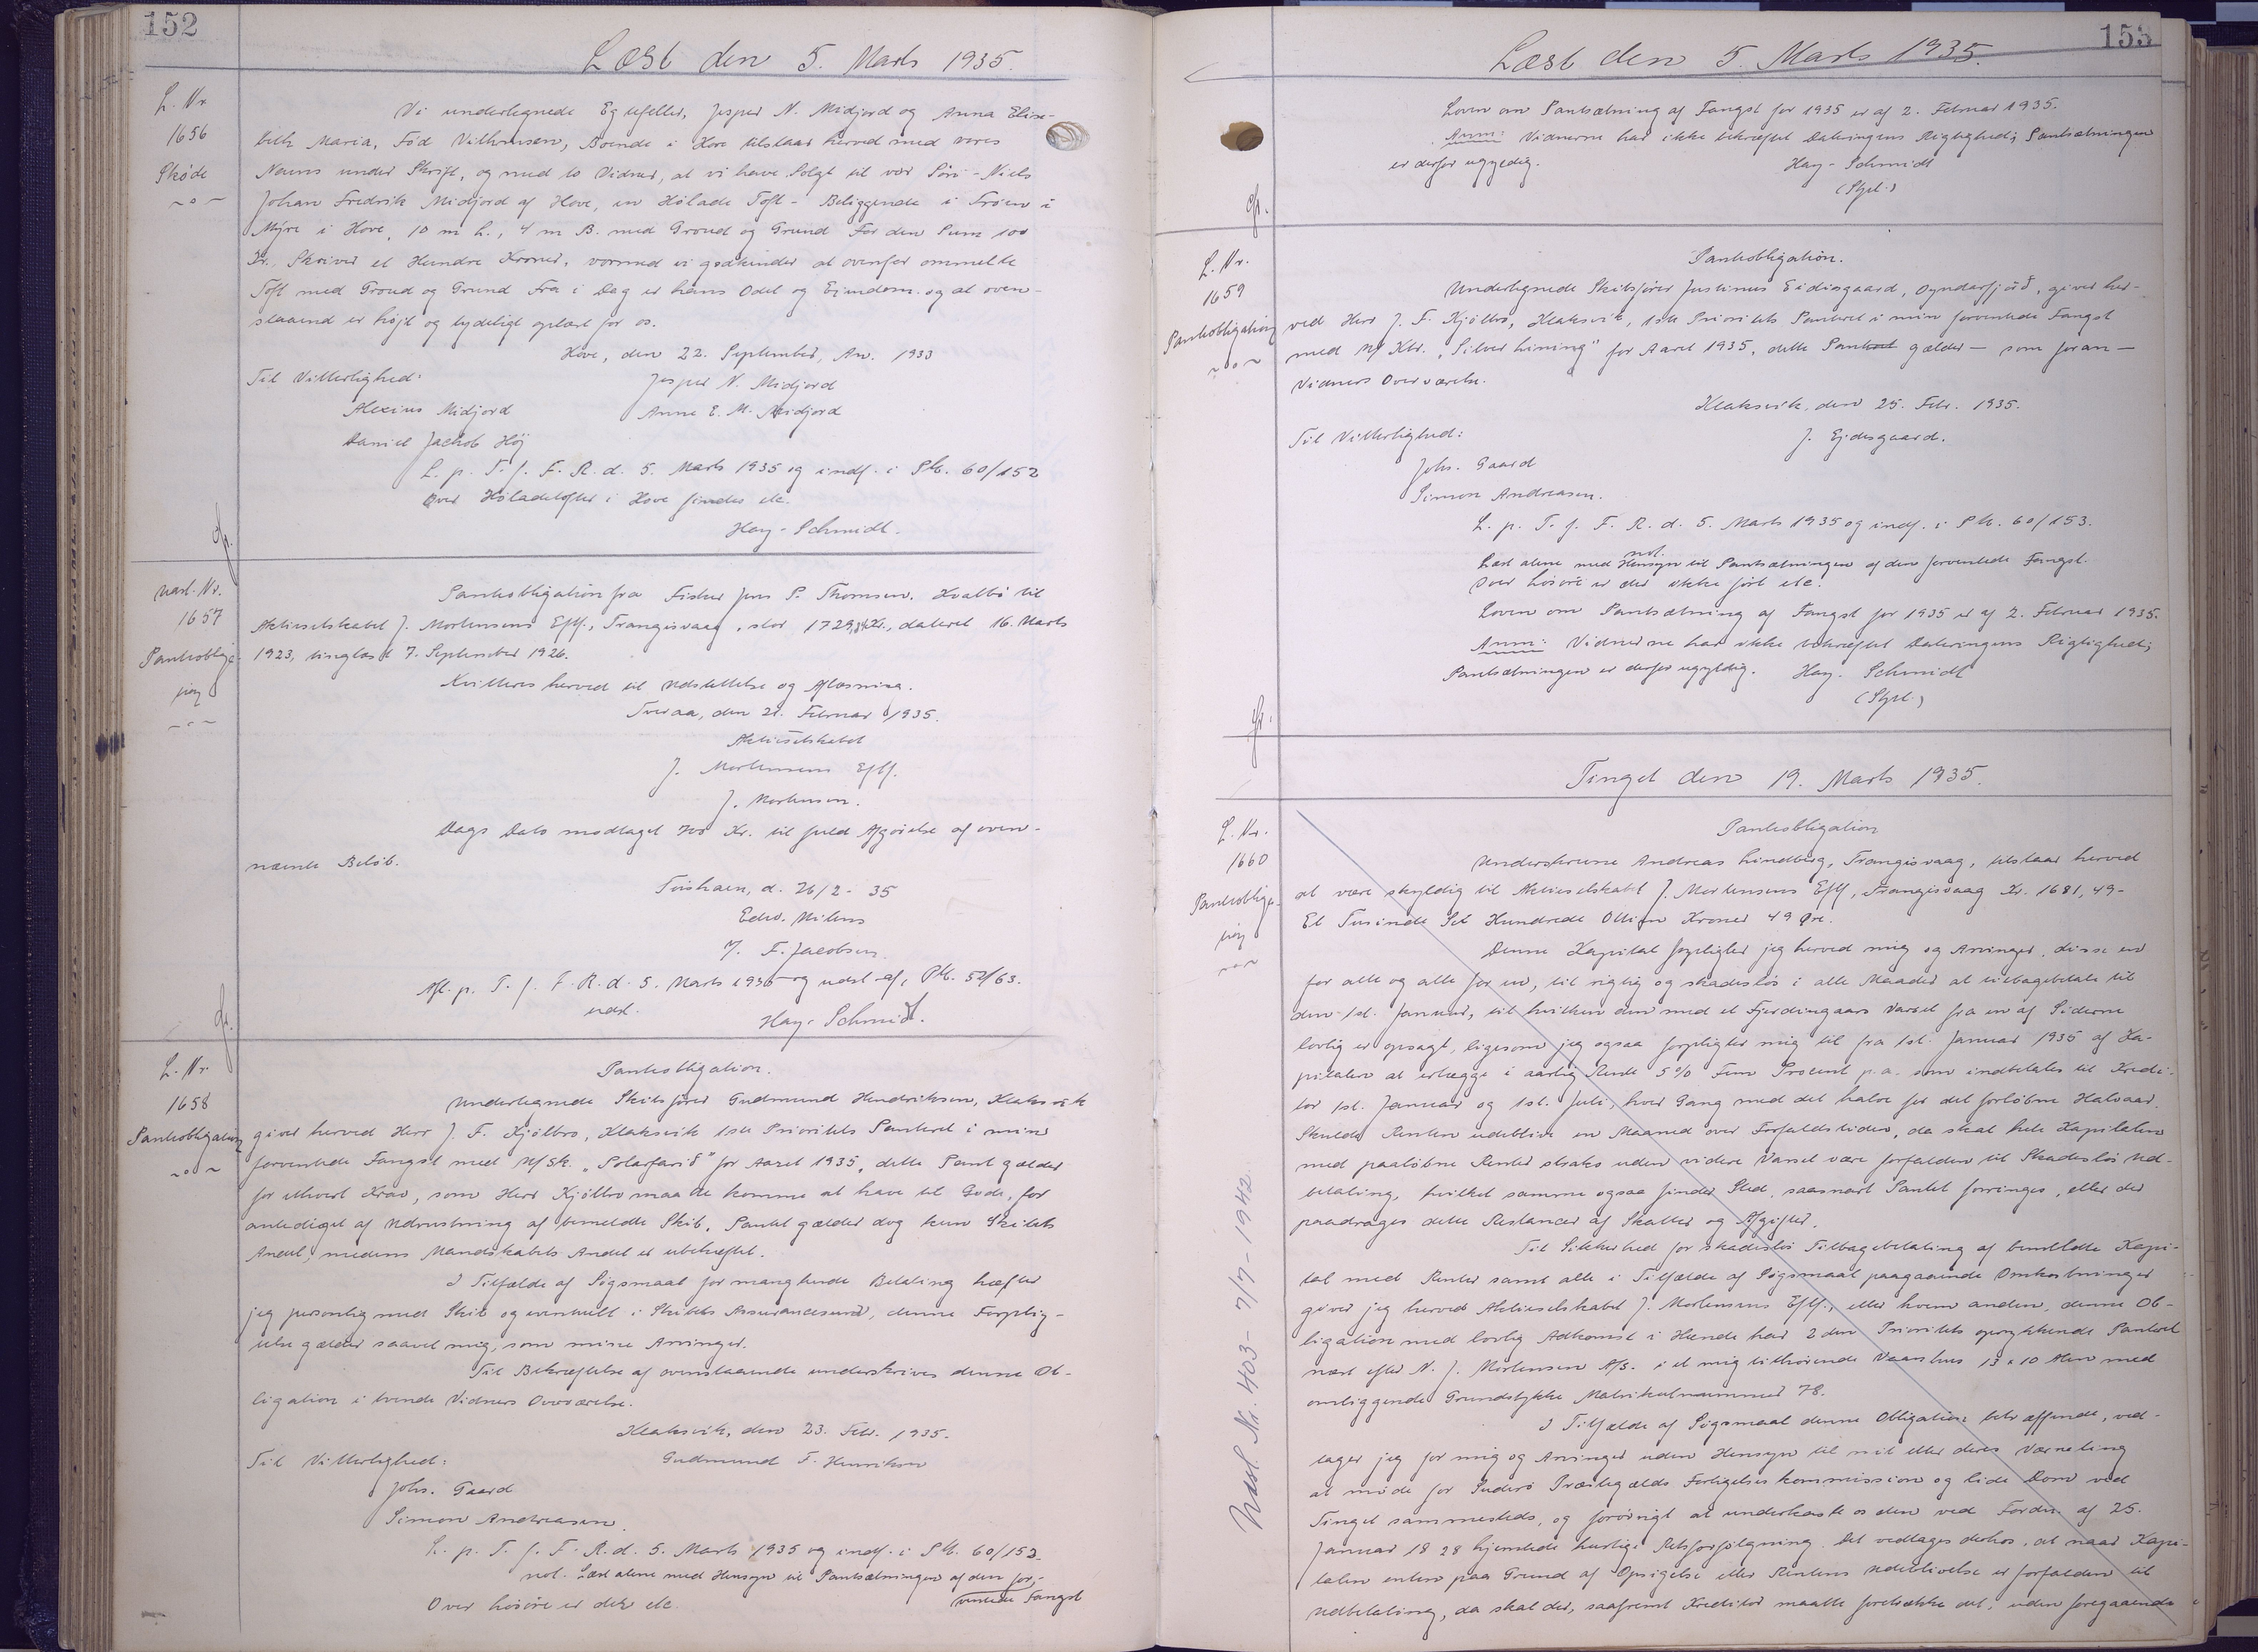 152
Læst den 5. Marts 1935.
L. Nr.
1656
Skøde
Vi undertegnede Egtefeller, Jesper N. Midjord og Anna Elisa-
beth Maria, Fød Vilhemsen, Boende i Hove tilstaar herved med vores
Navns under Skrift, og med to Vidner, at vi have Solgt til vor Søn - Niels
Johan Fredrik Midjord af Hove, en Hølade Toft - Beliggende i Trøen i
Mýre i Hove, 10 m L., 4 m B. med Groud og Grund For den Sum 100
Kr. Skriver et Hundre Kroner, vormed vi godkender at ovenfor ommelte
Toft med Groud og Grund Fra i Dag er hans Odel og Ejendom. og at oven-
staaend er højt og tydeligt oplæst for os.
Hove, den 22. September, An. 1933
Til Vitterlighed:
Jesper N. Midjord
Alexius Midjord
Anna E. M. Midjord
Daniel Jachob Høj
L. p. T. f. F. R. d. 5. Marts 1935 og indf. i Pb. 60/152
Over Høladetofter i Hove findes ele.
Hay-Schmidt.
1657
Pantobliga-
Pantobligation fra Fisker Jens P. Thomsen, Kvalbø til
Aktieselskabet J. Mortensens Eftf., Trangisvaag, stor 1729, Kr., dateret 16. Marts
1923, tinglæst 7. September 1926.
Kvitteres herved til Udslettelse og Aflæsning.
Tveraa, den 21. Februar 1935.
Aktieselskabet
J. Mortensens Eftf.
J. Mortensen.
Dags Dato modtaget 700 Kr. til fuld Afgørelse af oven-
nævnte Beløb.
Tórshavn, d. 26/2 - 35
Edw. Mitens
F. Jacobsen
Afl. p. T. f. F. R. d. 5. Marts 1935 og udsl. af Pb. 52/63.
Hay-Schmidt.
L. Nr.
1658
Pantobligation
Pantobligation.
Undertegnede Skibsfører Gudmund Hendriksen, Klaksvik
giver herved Herr J. F. Kjølbro, Klaksvik 1ste Prioritets Panteret i min
forventede Fangst med M/Sk. "Polarfarið" for Aaret 1935, dette Pant gælder
for ethvert Krav, som Herr Kjølbro maatte komme at have til Gode, for
anlediget af Udrustning af bemeldte Skib. Pantet gælder dog kun Skibets
Andel, medens Mandskabets Andel er ubehæftet.
I Tilfælde af Søgsmaal for manglende Betaling hæfter
jeg personlig med Skib og eventuelt i Skibets Assurancesum, denne Forplig-
telse gælder saavel mig, som mine Arvinger.
Til Bekræftelse af ovenstaaende underskrives denne Ob-
ligation i tvende Vidners Overværelse.
Klaksvik, den 23. Febr. 1935.
Til Vitterlighed:
Gudmund F. Henriksen
Johs. Gaard
Simon Andreasen.
L. p. T. f. F. R. d. 5. Marts 1935 og indf. i Pb. 60/152.
not. Læst alene med Hensyn til Pantsætningen af den for-
ventede Fangst
Over Løsøre er der ele.
153
Læst den 5. Marts 1935.
Loven om Pantsætning af Fangst for 1935 er af 2. Februar 1935.
Anm: Vidnerne har ikke bekræftet Dateringens Rigtighed; Pantsætningen
er derfor ugyldig.
Hay-Schmidt
L. Nr.
1659
Pantobligation
Pantobligation.
Undertegnede Skibsfører Justinus Eidisgaard, Oyndarfjørð, giver her-
ved Herr J. F. Kjølbro, Klaksvik, 1ste Prioritets Panteret i min forventede Fangst
med M/Ktr. "Silver Lining" for Aaret 1935, dette Pant gælder - som foran -
Vidners Overværelse.
Klaksvik, den 25. Febr. 1935.
Til Vitterlighed:
J. Ejdesgaard.
Johs. Gaard
Simon Andreasen.
L. p. T. f. F. R. d. 5. Marts 1935 og indf. i Pb. 60/153.
not.
Læst alene med Hensyn til Pantsætningen af den forventede Fangst.
Over Løsøre er der ikke ført ele.
Loven om Pantsætning af Fangst for 1935 er af 2. Februar 1935.
Anm: Vidnerne har ikke bekræftet Dateringens Rigtighed;
Pantsætningen er derfor ugyldig.
Hay. Schmidt
Tinget den 19. Marts 1935.
L. Nr.
1660
Pantobliga-
Pantobligation
Underskrevne Andreas Lindberg, Trangisvaag, tilstaar herved
at være skyldig til Aktieselskabet J. Mortensens Eftf, Trangisvaag Kr. 1681,49-
Et Tusinde Sex Hundrede Ottien Kroner 49 Øre.
Denne Kapital forpligter jeg herved mig og Arvinger, disse en
for alle og alle for en, til rigtig og skadesløs i alle Maader at tilbagebetale til
den 1st. Januar, til hvilken den med et Fjerdingaars Varsel fra en af Siderne
lovlig er opsagt, ligesom jeg ogsaa forpligter mig til fra 1st. Januar 1935 af Ka-
pitalen at erlægge i aarlig Rente 5% Fem Procent p.a. som indbetales til Kredi-
tor 1st. Januar og 1st. Juli, hver Gang med det halve for det forløbne Halvaar.
Skulde Renten udeblive en Maaned over Forfaldstiden, da skal hele Kapitalen
med paaløbne Renter straks uden videre Varsel være forfalden til Skadesløs Ud-
betaling, hvilket samme ogsaa finder Sted, saasnart Pantet forringes, eller der
paadrages dette Restancer af Skatter og Afgifter.
Til Sikkerhed for skadesløs Tilbagebetaling af bemeldte Kapi-
tal med Renter samt alle i Tilfælde af Søgsmaal paagaaende Omkostninger
giver jeg herved Aktieselskabet J. Mortensens Eftf., eller hvem anden, denne Ob-
ligation med lovlig Adkomst i Hænde har 2den Prioritets oprykkende Panteret
næst efter N. J. Mortensen A/S. i et mig tilhørende Vaanhus 13 x 10 Alen med
omliggende Grundstykke Matrikulnummer 78.
I Tilfælde af Søgsmaal denne Obligation betræffende, ved-
tager jeg for mig og Arvinger uden Hensyn til mit eller deres Værneting
at møde for Suderø Præstegælds Forligelseskommission og lide Dom ved
Tinget sammesteds, og forøvrigt at underkaste os den ved Fordn. af 25.
Januar 1828 hjemlede hurtige Retsforfølgning. Det vedtages derhos, at naar Kapi-
talen enten paa Grund af Opsigelse eller Rentens Udeblivelse er forfalden til
Udbetaling, da skal der, saafremt Kreditor maatte foretrække det, uden foregaaende
Udsl. Nr. 403 - 7/7 - 1942.